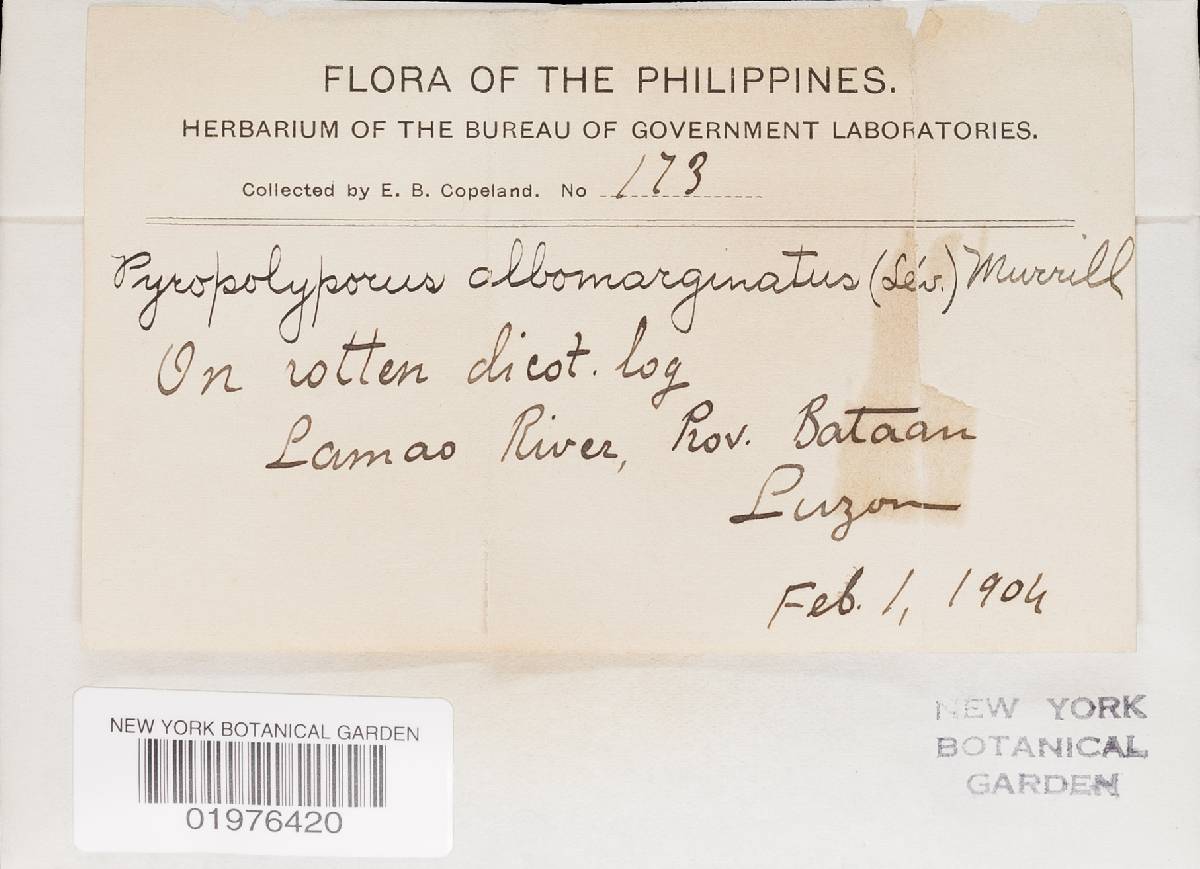 FLORA OF THE PHILIPPINES.
HERBARIUM OF THE BUREAU OF GOVERNMENT LABORATORIES.
Collected by E. B. Copeland. No 173
Pyropolyporus albomarginatus (Lév.) Murrill
On rotten dicot. log
Lamao River, Prov. Bataan
Luzon
Feb. 1, 1904
NEW YORK BOTANICAL GARDEN
01976420
NEW YORK
BOTANICAL
GARDEN